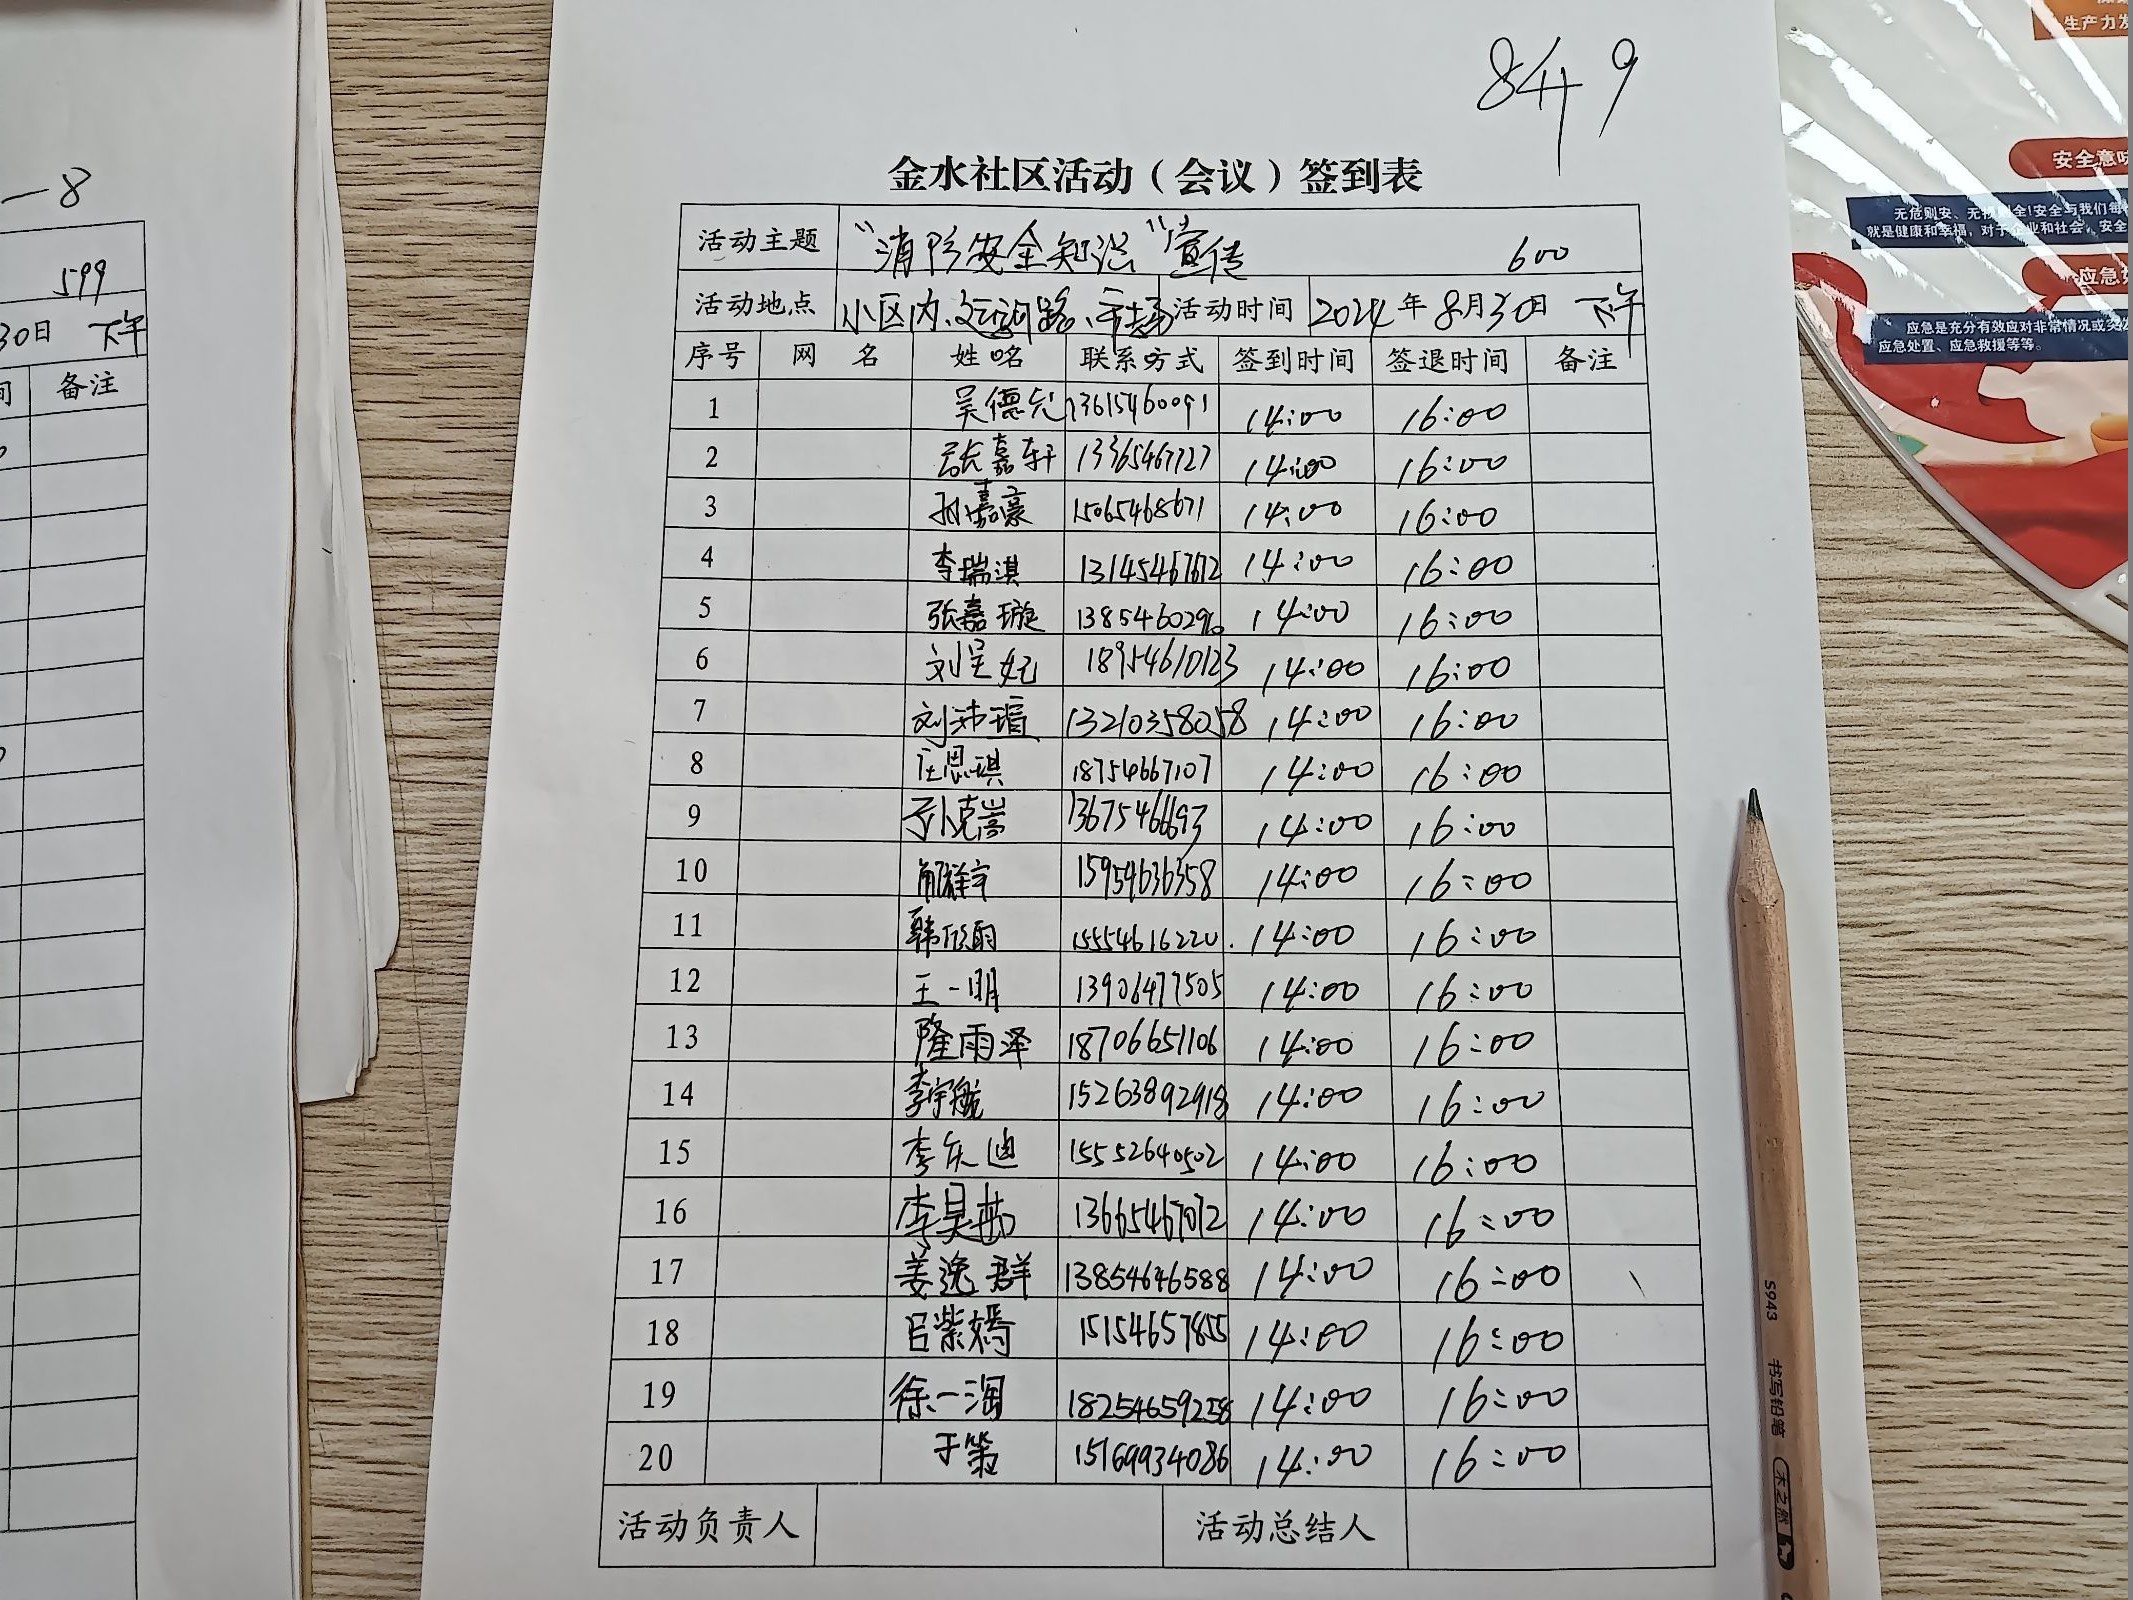 849
金水社区活动（会议）签到表
活动主题 "消防安全知识"宣传 600
活动地点 小区内、运河路、市场 活动时间 2024年8月30日 下午
序号 网 名 姓 名 联系方式 签到时间 签退时间 备注
1 吴德允 13615460091 14:00 16:00
2 张嘉轩 13365467727 14:00 16:00
3 孙嘉豪 15065468671 14:00 16:00
4 李瑞淇 13145467612 14:00 16:00
5 张嘉璇 1385460296 14:00 16:00
6 刘呈妃 18954610123 14:00 16:00
7 刘沛瑄 13210358058 14:00 16:00
8 任思琪 18754667107 14:00 16:00
9 孙克嵩 13675466693 14:00 16:00
10 解祥宇 15954636358 14:00 16:00
11 韩欣雨 15554616220 14:00 16:00
12 王一明 13906477505 14:00 16:00
13 隆雨泽 18706651106 14:00 16:00
14 李宇航 15263892918 14:00 16:00
15 李东迪 15552640502 14:00 16:00
16 李昊茹 13665467012 14:00 16:00
17 姜逸群 13854646588 14:00 16:00
18 吕紫嫣 15154657855 14:00 16:00
19 徐一涵 18254659258 14:00 16:00
20 于策 15169934086 14:00 16:00
活动负责人 活动总结人
一8
599
30日 下午
间 备注
生产力发
安全意味
无危则安、无损则全!安全与我们每
就是健康和幸福，对于企业和社会，安全
应急
应急是充分有效应对非常情况或突发
应急处置、应急救援等等。
S943 书写铅笔 木之然